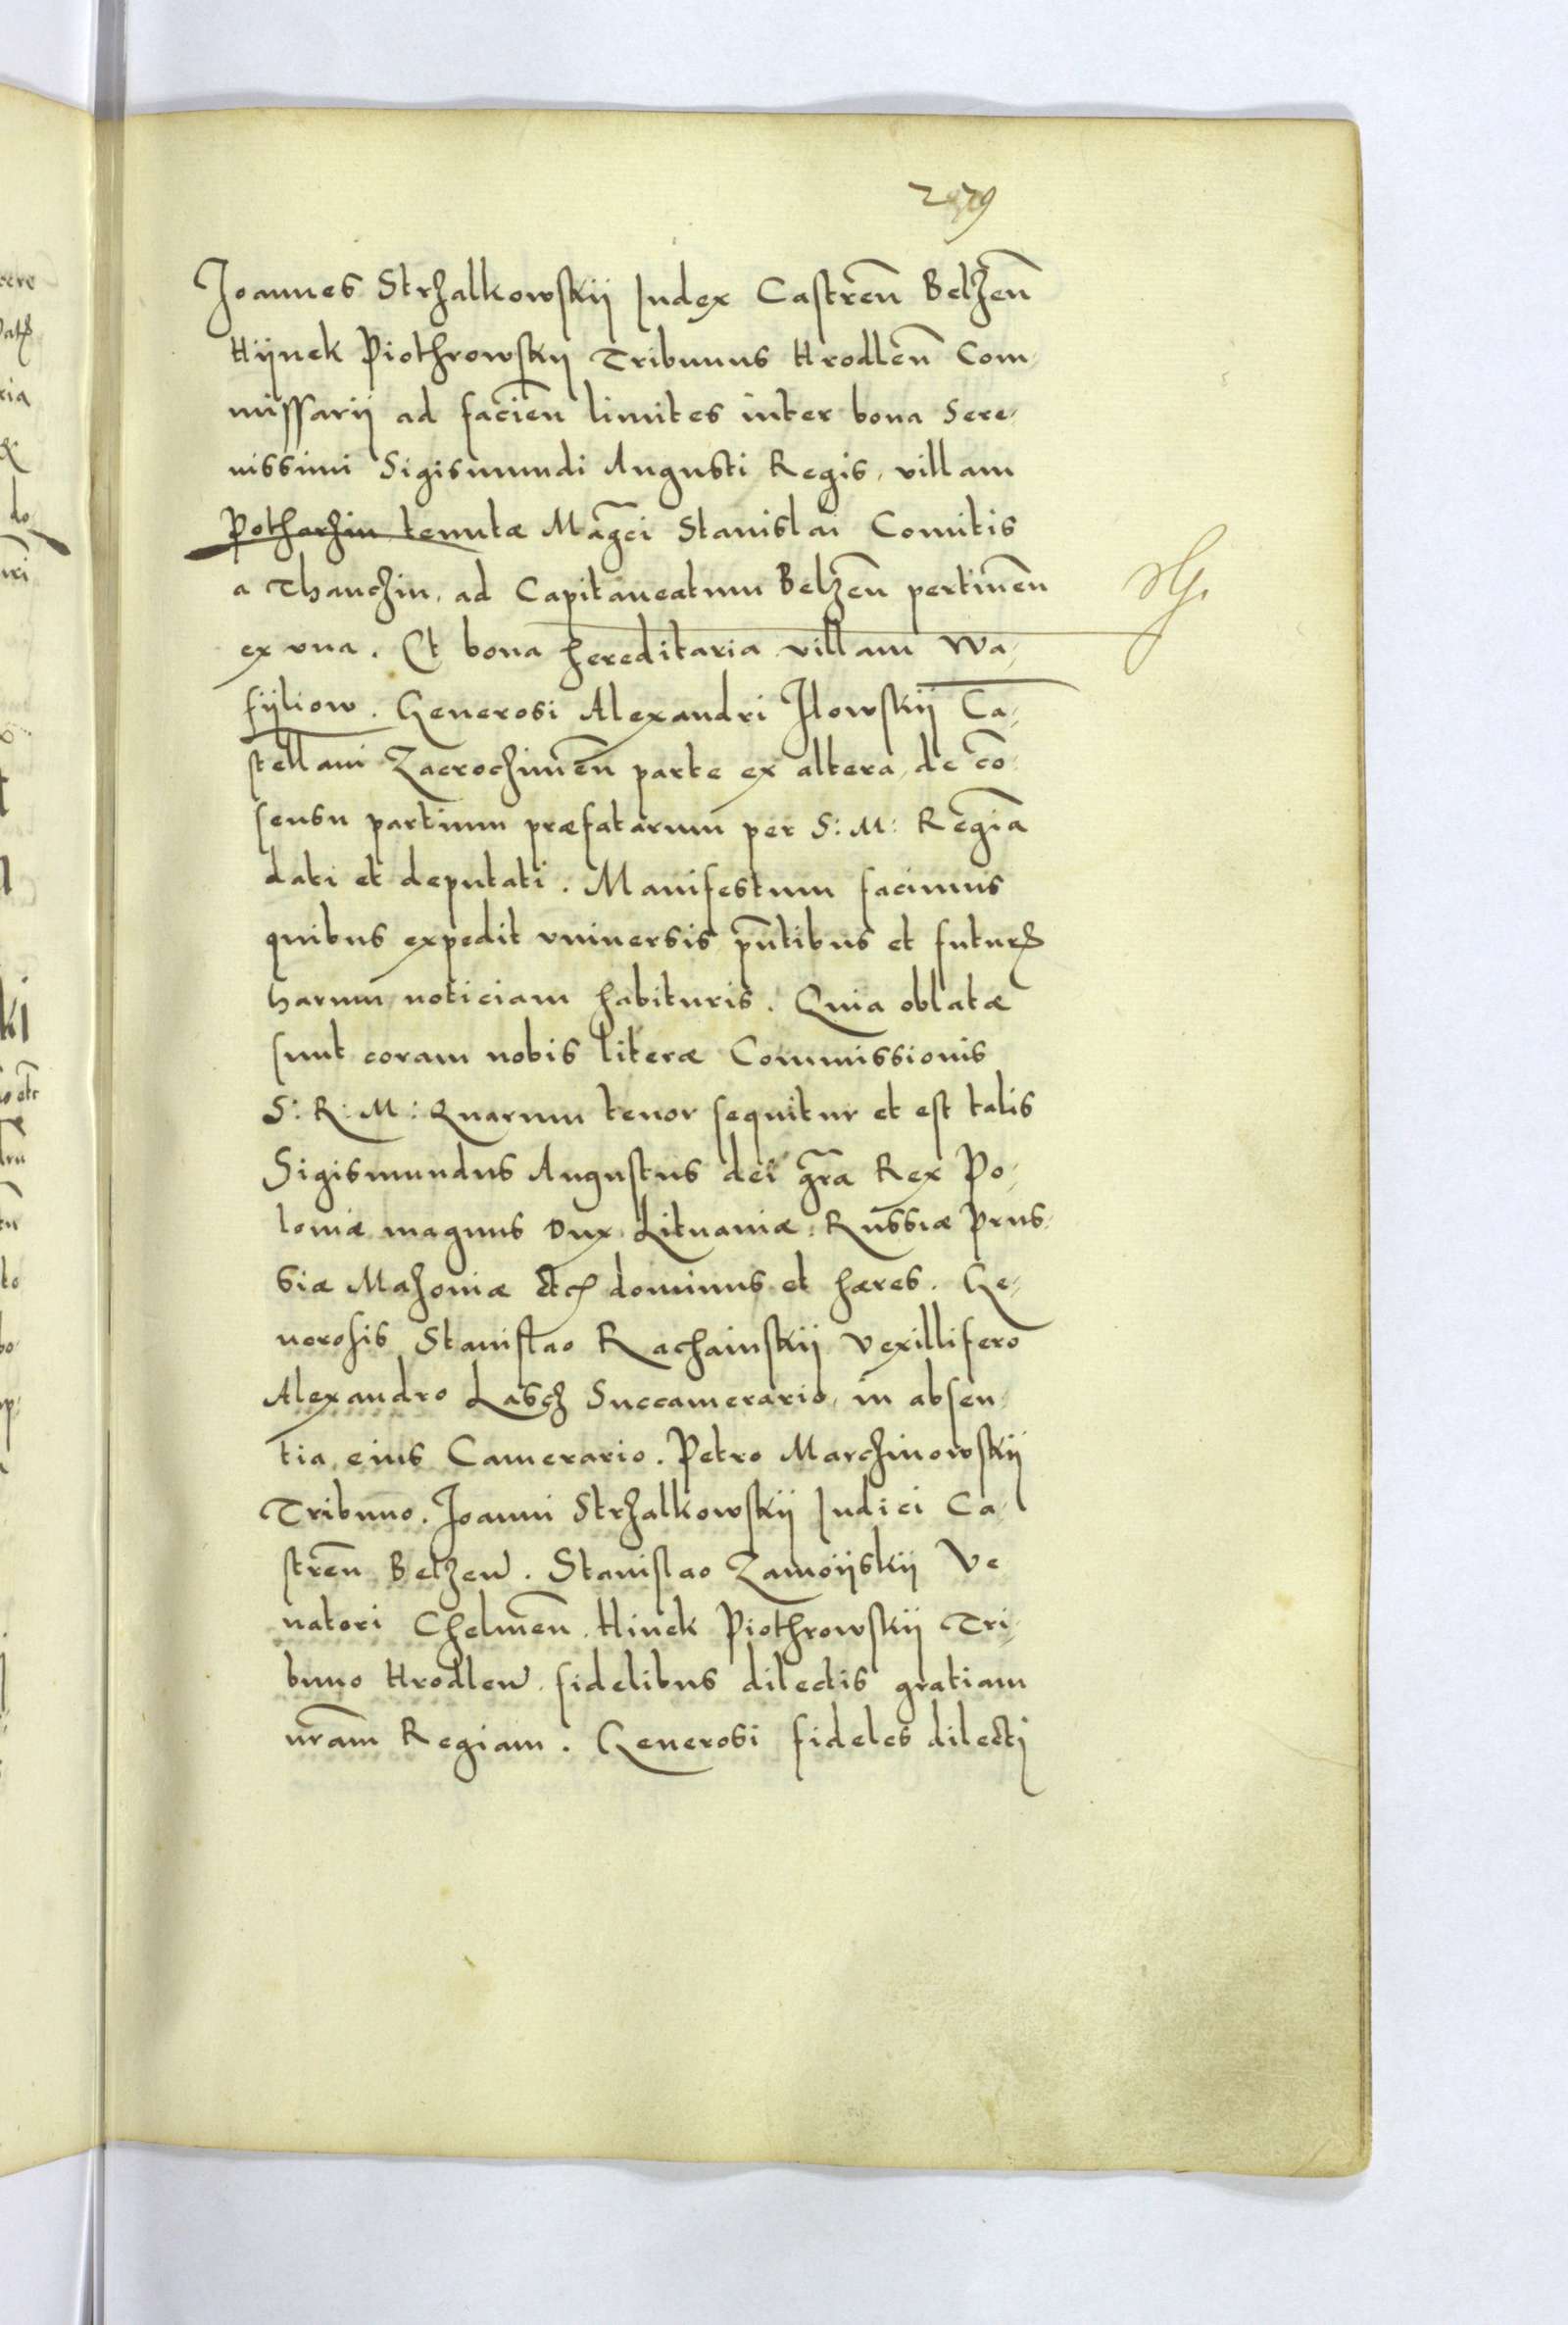 Joannes Strzalkowskij Iudex Castren̄ Belzen̄
Hijnek Piothrowskij Tribunus Hrodlen̄ Com,
missarij ad facien̄ limites inter bona Sere,
nissimi Sigismundi Augusti Regis, villam
Potharzin tenutæ Mag̅ci Stanislai Comitis
a Thanczin, ad Capitaneatum Belzen̄ pertinen̄
ex vna. Et bona hereditaria villam Wa,
sijliow. Generosi Alexandri Ilowskij Ca,
stellani Zacroczimen̄ parte ex altera, de co̅
sensu partium præfatarum per S: M: Regia̅
dati et deputati. Manifestum facimus
quibus expedit vniuersis pn̅tibus et futur
harum noticiam habituris. Quia oblatæ
sunt coram nobis literæ Commissionis
S: R: M: Quarum tenor sequitur et est talis
Sigismundus Augustus dei gr̅a Rex Po,
loniæ magnus Dux Lituaniæ: Russiæ Prus,
siæ Mazoniæ etc dominus et hæres. Ge,
nerosis Stanislao Rachainskij Vexillifero
Alexandro Lasch Succamerario, in absen,
tia eius Camerario. Petro Marchinowskij
Tribuno. Joanni Strzalkowskij Iudici Ca,
stren̄ Belzen̄. Stanislao Zamoijskij Ve
natori Chelmen̄. Hinek Piothrowskij Tri,
buno Hrodlen̄. fidelibus dilectis gratiam
nr̅am Regiam. Generosi fideles dilecti